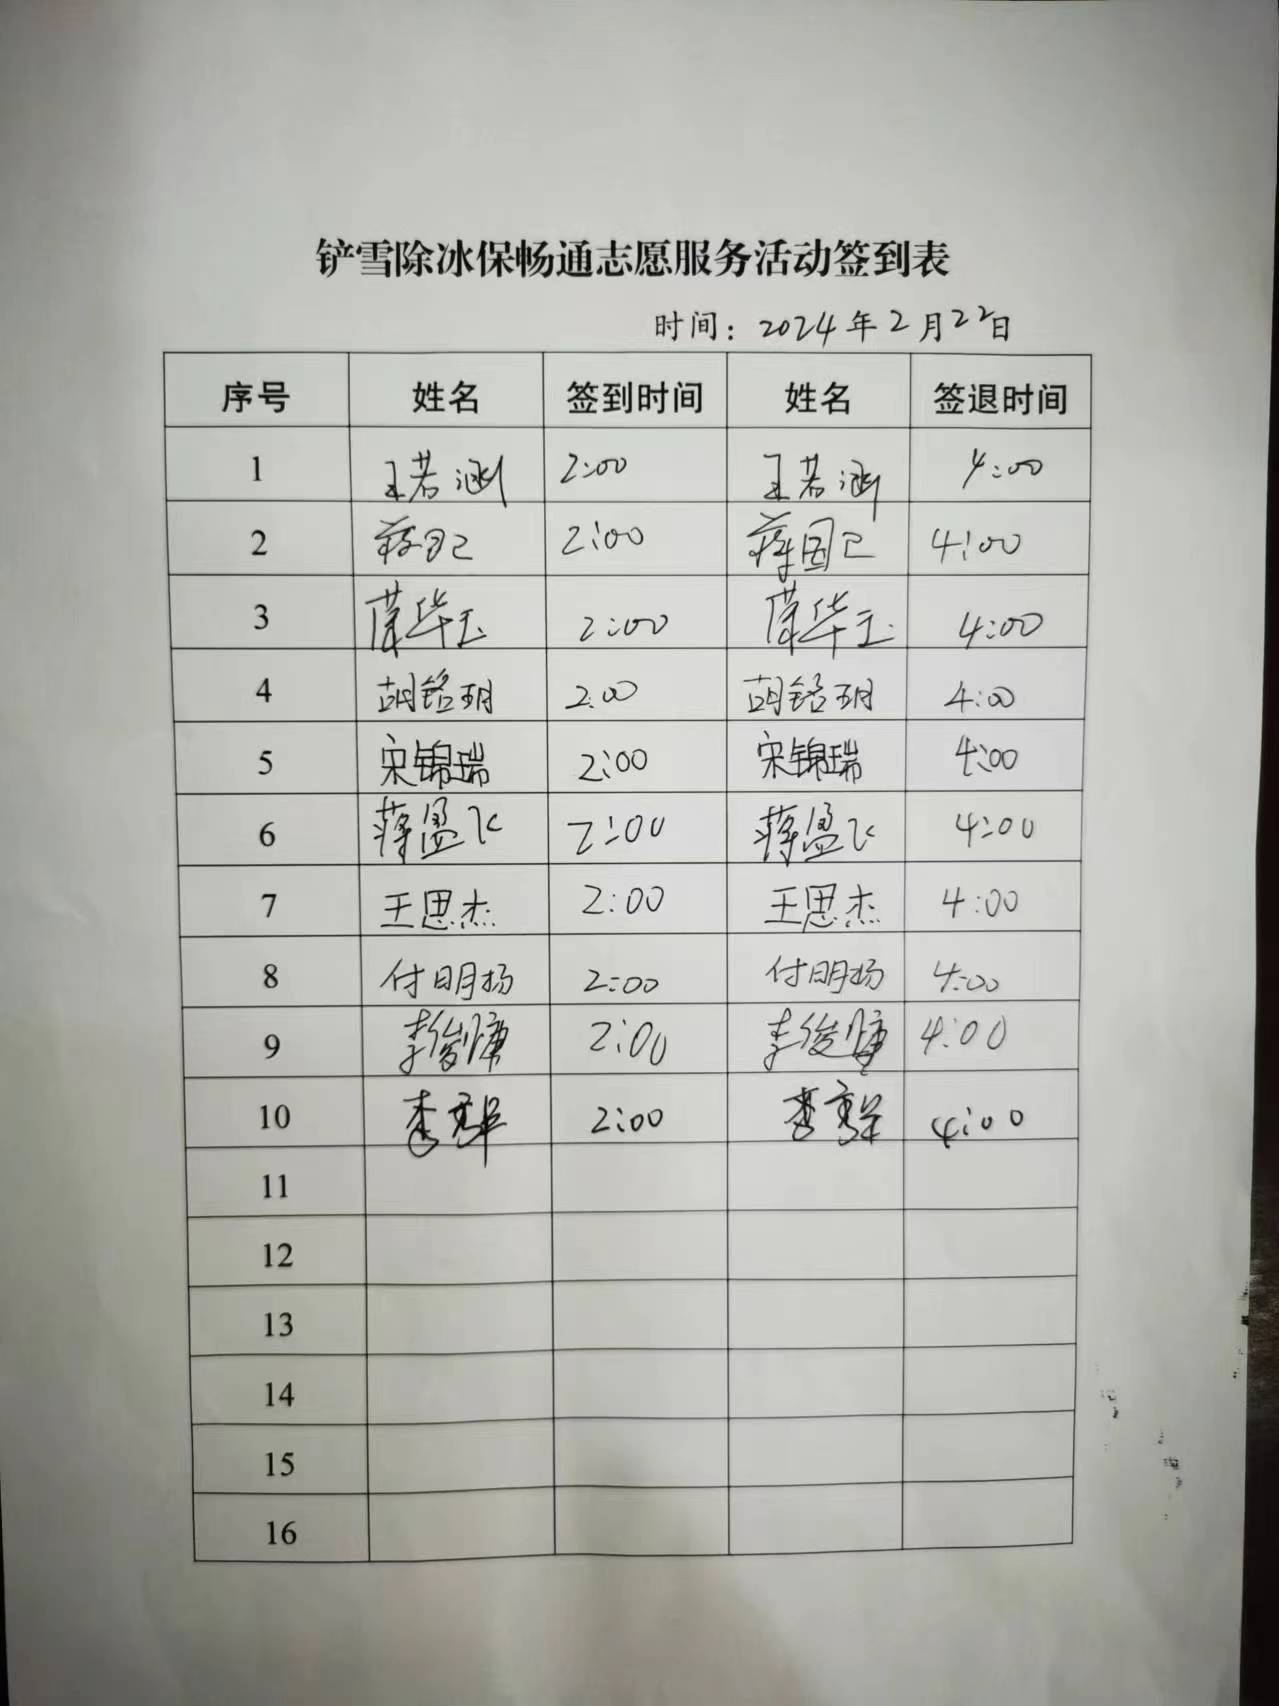 铲雪除冰保畅通志愿服务活动签到表
时间：2024年2月22日
序号 姓名 签到时间 姓名 签退时间
1 王若涵 2:00 王若涵 4:00
2 2:00 4:00
3 2:00 4:00
4 胡铭玥 2:00 胡铭玥 4:00
5 宋锦瑞 2:00 宋锦瑞 4:00
6 蒋盈飞 2:00 蒋盈飞 4:00
7 王思杰 2:00 王思杰 4:00
8 付明扬 2:00 付明扬 4:00
9 李俊 2:00 李俊 4:00
10 李 2:00 李 4:00
11
12
13
14
15
16